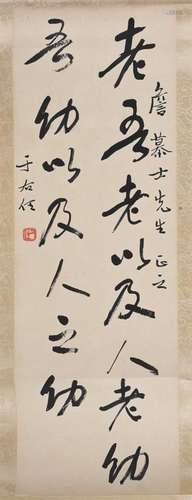 詹慕士先生正之
老吾老以及人老幼
吾幼以及人之幼
于右任